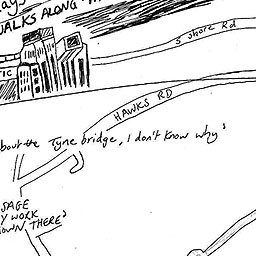 WALKS ALONG
S Shore Rd
TIC
HAWKS RD
bout the Tyne bridge, I don't know why'
SAGE
Y WORK
OWN THERE'